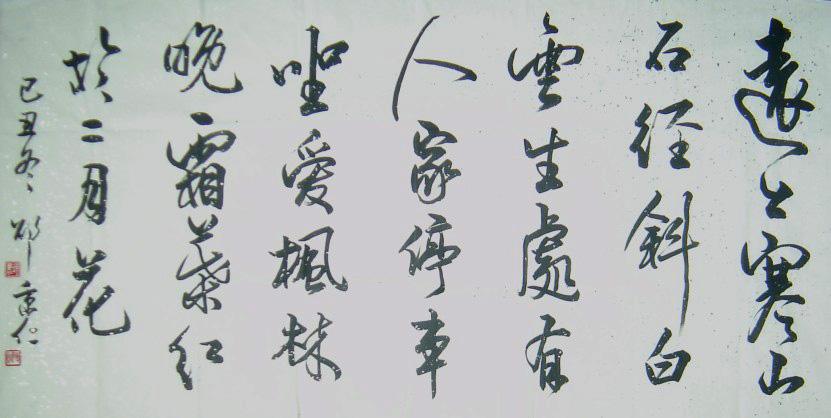 遠上寒山
石径斜白
雲生處有
人家停車
坐愛楓林
晚霜葉紅
於二月花
己丑冬